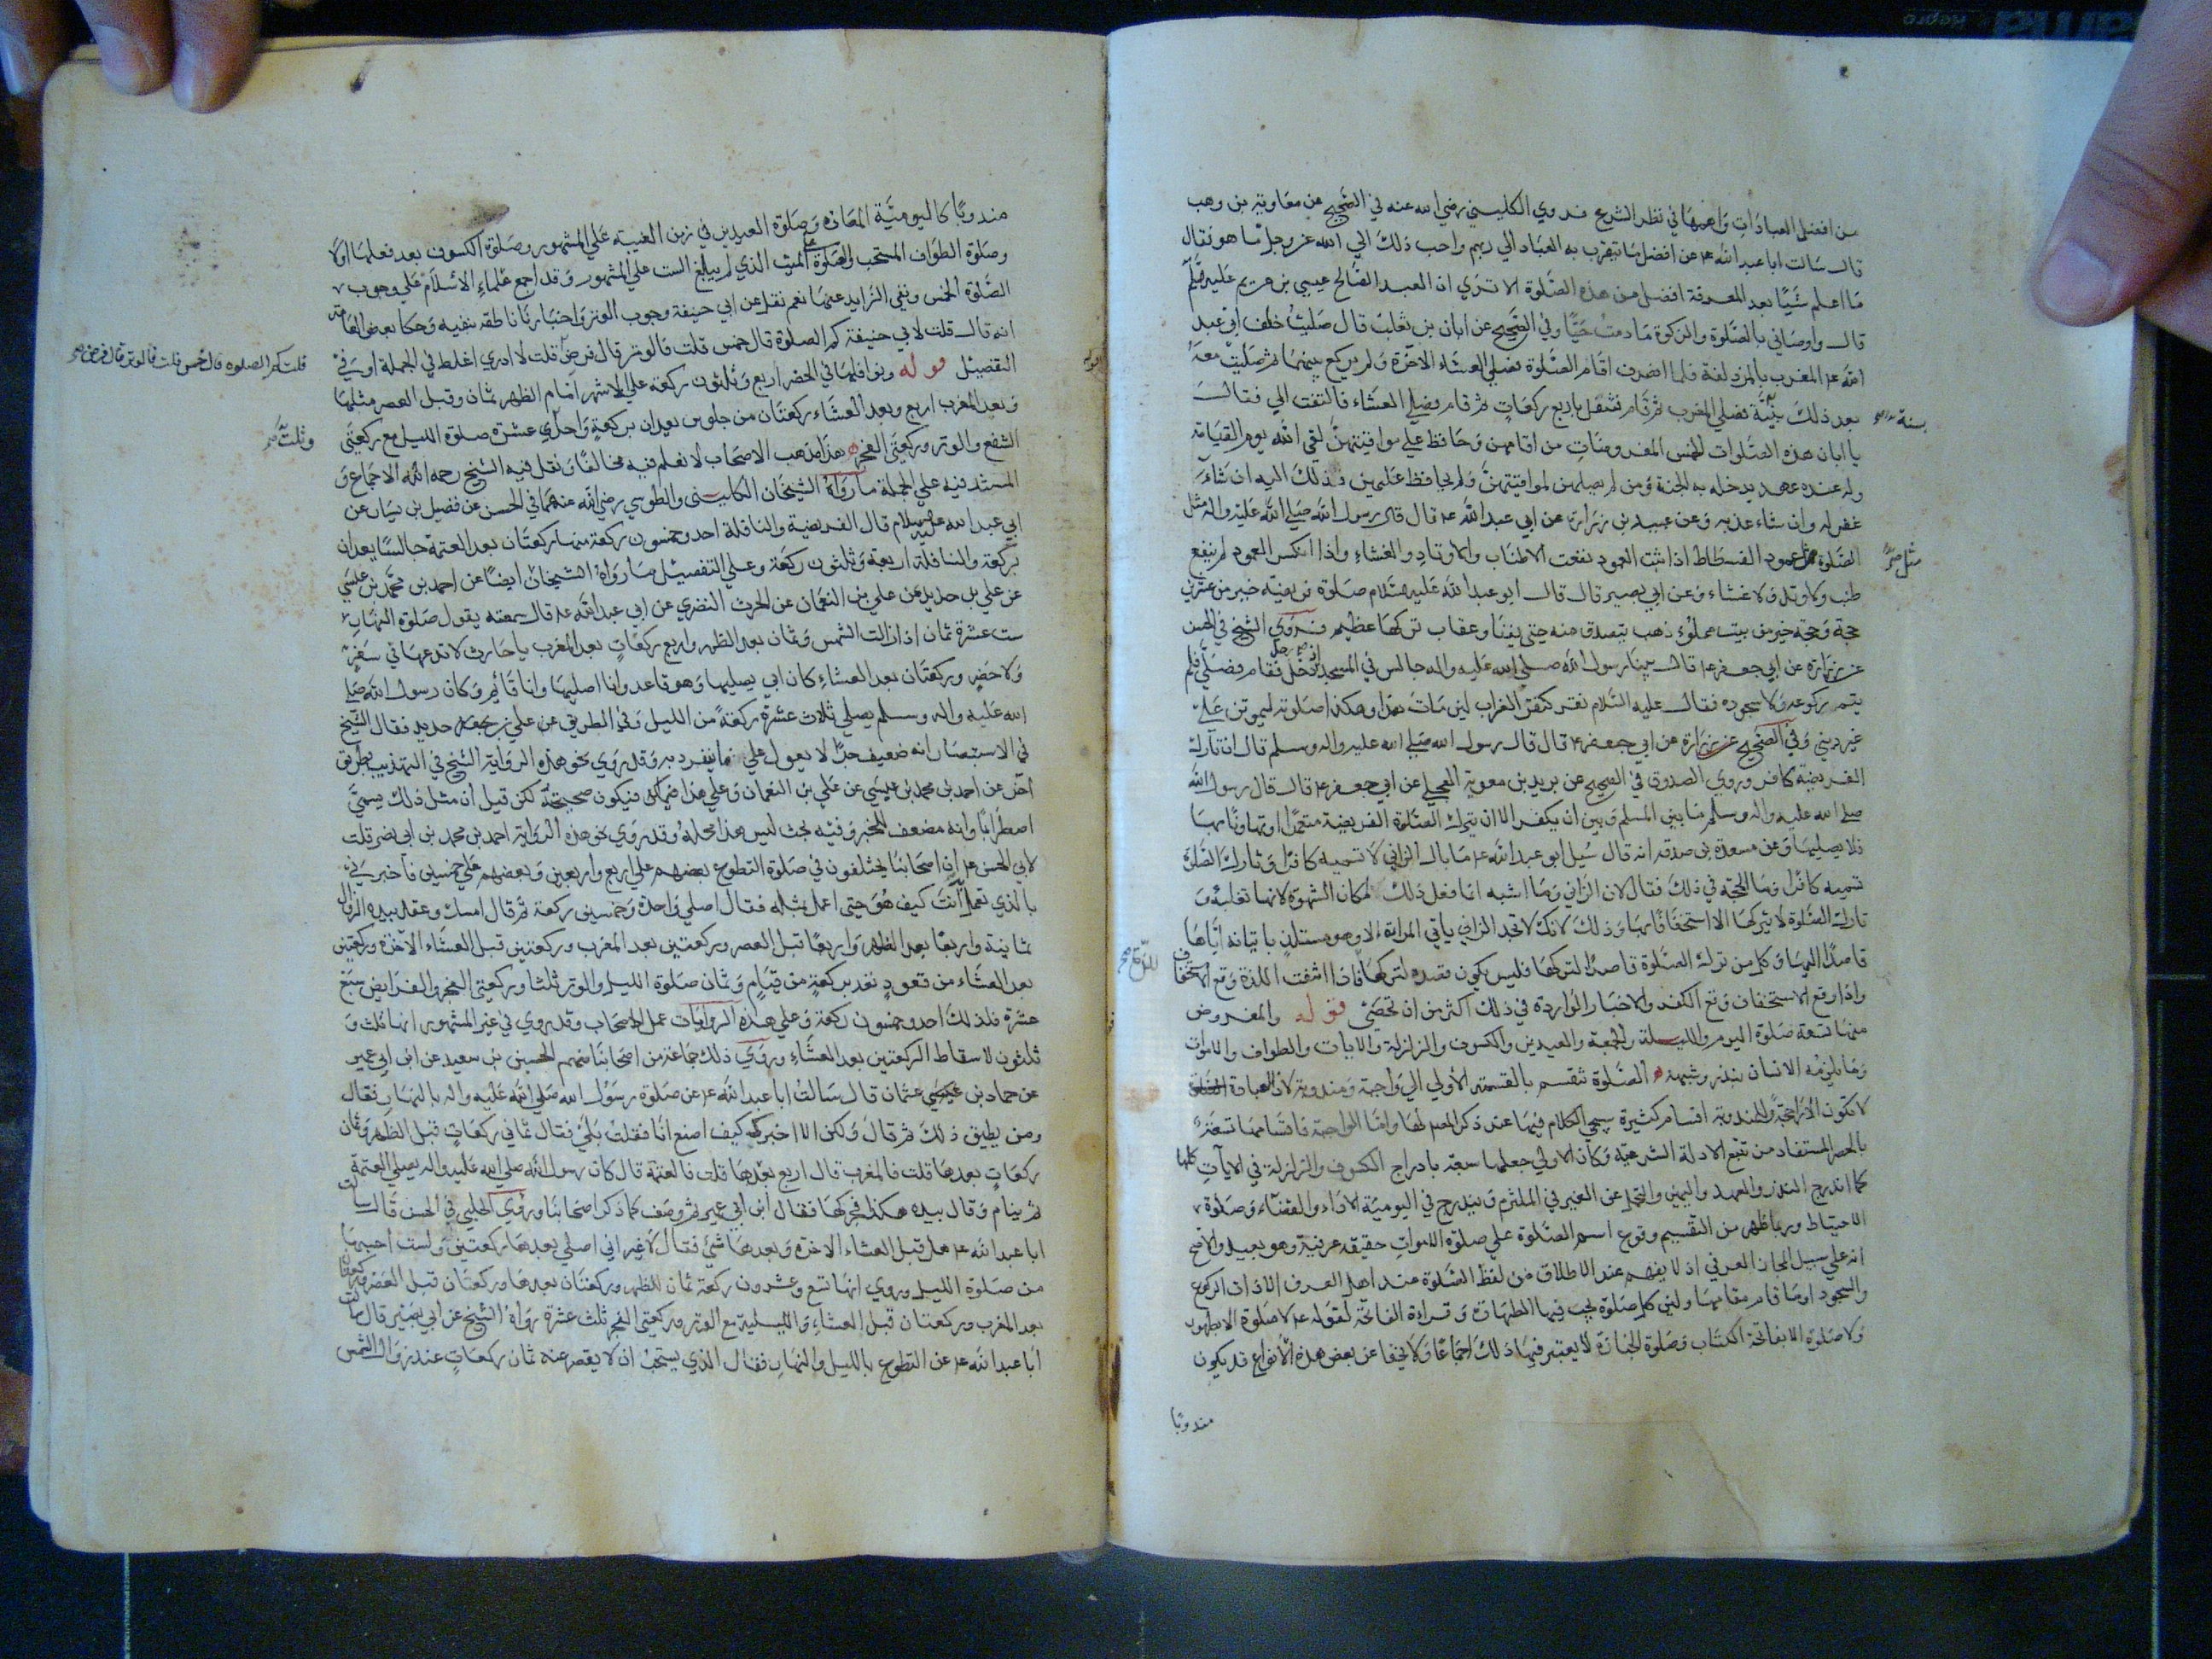 من افضل العبادات واهمها في نظر الشرع فروي الكليني رضي الله عنه في الصحيح عن معاوية بن وهب
قال سالت ابا عبد الله ع عن افضل ما يتقرب به العباد الي ربهم واحب ذلك الي الله عز وجل ما هو فقال
ما اعلم شيًا بعد المعرفة افضل من هذه الصلوة الا تري ان العبد الصالح عيسي بن مريم عليه
قال واوصاني بالصلوة والزكوة ما دمت حيًا وفي الصحيح عن ابان بن تغلب قال صليت خلف ابي عبد
الله ع المغرب بالمزدلفة فلما انصرف اقام الصلوة فصلي العشاء الاخرة ولم يركع بينهما ثم صليت معه
بعد ذلك بسنة فصلي المغرب ثم قام فتنفل باربع ركعات ثم قام فصلي العشاء فالتفت الي فقال
بسنة
يا ابان هذه الصلوات الخمس المفروضات من اقامهن وحافظ علي مواقيتهن لقي الله يوم القيامة
وله عنده عهد يدخله به الجنة ومن لم يصلهن لمواقيتهن ولم يحافظ عليهن فذلك اليه ان شاء
غفر له وان شاء عذبه وعن عبيد بن زرارة عن ابي عبد الله ع قال قال رسول الله صلي الله عليه واله مثل
الصلوة مثل عمود الفسطاط اذا ثبت العمود نفعت الاطناب والاوتاد والغشاء واذا انكسر العمود لم ينفع
مثل
طنب ولا وتد ولا غشاء وعن ابي بصير قال قال ابو عبد الله عليه السلام صلوة فريضة خير من عشرين
حجة وحجة خير من بيت مملوء ذهب يتصدق منه حتي يفنا وعقاب تركها عظيم فروي الشيخ في الحسن
عن زرارة عن ابي جعفر ع قال بينا رسول الله صلي الله عليه واله جالس في المسجد اذ دخل رجل فقام فصلي فلم
يتم ركوعه ولا سجوده فقال عليه السلام نقر كنقر الغراب لين مات هذا وهكذا صلوته ليموتن علي
غير ديني وفي الصحيح عن زرارة عن ابي جعفر ع قال قال رسول الله صلي الله عليه واله وسلم قال ان تارك
الفريضة كافر وروي الصدوق في الصحيح عن بريد بن معوية العجلي عن ابي جعفر ع قال قال رسول الله
صلي الله عليه واله وسلم ما بين المسلم وبين ان يكفر الا ان يترك الصلوة الفريضة متعمدًا او تهاونًا بها
فلا يصليها وعن مسعدة بن صدقة انه قال سيل ابو عبد الله ع ما بال الزاني لا تسميه كافرًا وتارك الصلوة
تسميه كافرًا وما الحجة في ذلك فقال لان الزاني وما اشبه انما فعل ذلك لمكان الشهوة لانها تغلبه و
تارك الصلوة لا يتركها الا استخفافًا بها وذلك لانك لا تجد الزاني ياتي المراة الا وهو مستلذ باتيانه اياها
قاصدًا اليها وكل من ترك الصلوة قاصدًا لتركها فليس يكون قصده لتركها فاذا انتفت اللذة وقع الاستخفاف
واذا وقع الاستخفاف وقع الكفر والاخبار الواردة في ذلك اكثر من ان تحصي قوله والمفروض
منها تسعة صلوة اليوم والليلة والجمعة والعيدين والكسوف والزلزلة والايات والطواف والاموات
وما يلزمه الانسان بنذر وشبهه الصلوة تنقسم بالقسمة الاولي الي واجبة ومندوبة لان العبادة
لا تكون الا راجحة وللمندوبة اقسام كثيرة سيجي الكلام فيها عند ذكر المصـ لها واما الواجبة فاقسامها تسعة
بالحصر المستفاد من تتبع الادلة الشرعية وكان الاولي جعلها سبعة بادراج الكسوف والزلزلة في الايات كلها
كما اندرج النذر والعهد واليمين والتحمل عن الغير في الملتزم ويندرج في اليومية الاداء والقضاء وصلوة
الاحتياط وربما ظهر من التقسيم وقوع اسم الصلوة علي صلوة الاموات حقيقة عرفية وهو بعيد والاصح
انه علي سبيل المجاز العرفي اذ لا يفهم عند الاطلاق من لفظ الصلوة عند اهل العرف الا ذات الركوع
والسجود او ما قام مقامهما ولين كل صلوة يجب فيها الطهارة وقراءة الفاتحة لقوله ع لا صلوة الا بطهور
ولا صلوة الا بفاتحة الكتاب وصلوة الجنازة لا يعتبر فيها ذلك اجماعًا ولا يخفا عن بعض هذه الانواع قد يكون
مندوبًا
مندوبًا كاليومية المعادة وصلوة العيدين في زمن الغيبة علي المشهور وصلوة الكسوف بعد فعلها اولا
وصلوة الطواف المستحب والصلوة علي الميت الذي لم يبلغ الست علي المشهور وقد اجمع علماء الاسلام علي وجوب
الصلوة الخمس ونفي الزايد عنها نعم نقل عن ابي حنيفة وجوب الوتر واخبارنا ناطقة بنفيه وحكا بعض العامة
انه قال قلت لابي حنيفة كم الصلوة قال خمس قلت فالوتر قال فرض قلت لا ادري اغلط في الجملة او في
قلت كم الصلوه قال خمس قلت فالوتر قال فرض
التفصيل قوله ونوافلها في الحضر اربع وثلثون ركعة علي الاشهر امام الظهر ثمان وقبل العصر مثلها
وبعد المغرب اربع وبعد العشاء ركعتان من جلوس يعدان بركعة واحدي عشرة صلوة الليل مع ركعتي
الشفع والوتر وركعتي الفجر هذا مذهب الاصحاب لا نعلم فيه مخالفًا ونقل فيه الشيخ رحمه الله الاجماع و
المستند فيه علي الجملة ما رواه الشيخان الكليني والطوسي رضي الله عنهما في الحسن عن فضيل بن يسار عن
ابي عبد الله عليه السلام قال الفريضة والنافلة احد وخمسون ركعة منها ركعتان بعد العتمة جالسًا يعدان
بركعة والنافلة اربعة وثلثون ركعة وعلي التفصيل ما رواه الشيخان ايضًا عن احمد بن محمد بن عيسي
عن علي بن حديد عن علي بن النعمان عن الحرث النضري عن ابي عبد الله ع قال سمعته يقول صلوة النهار
ست عشرة ثمان اذا زالت الشمس وثمان بعد الظهر واربع ركعات بعد المغرب يا حارث لا تدعها في سفر
ولا حضر وركعتان بعد العشاء كان ابي يصليها وهو قاعد وانا اصليها وانا قايم وكان رسول الله صلي
الله عليه واله وسلم يصلي ثلاث عشرة ركعة من الليل وفي الطريق عن علي بن حديد فقال الشيخ
في الاستبصار انه ضعيف جدًا لا يعول علي ما ينفرد به وقد روي نحو هذه الرواية الشيخ في التهذيب بطريق
آخر عن احمد بن محمد بن عيسي عن علي بن النعمان وعلي هذا فيكون صحيحة لكن قيل ان مثل ذلك يسمي
اضطرابًا وانه مضعف للخبر وفيه بحث ليس هذا محله وقد روي نحو هذه الرواية احمد بن محمد بن ابي نصر قلت
لابي الحسن ع ان اصحابنا يختلفون في صلوة التطوع بعضهم علي اربع واربعين وبعضهم علي خمسين فاخبرني
بالذي تعمل انت كيف هو حتي اعمل بمثله فقال اصلي واحدة وخمسين ركعة ثم قال امسك وعقد بيده الزوال
ثمانية واربعًا بعد الظهر واربعًا قبل العصر وركعتين بعد المغرب وركعتين قبل العشاء الآخرة وركعتين
بعد العشاء من قعود تعد بركعة من قيام وثمان صلوة الليل والوتر ثلثا وركعتي الفجر والفرايض سبع
عشرة فذلك احد وخمسون ركعة وعلي هذه الروايات عمل الاصحاب وقد روي في غير المشهور انها ثلث و
ثلثون لاسقاط الركعتين بعد العشاء وروي ذلك جماعة من اصحابنا منهم الحسين بن سعيد عن ابن ابي عمير
عن حماد بن عثمان قال سالت ابا عبد الله ع عن صلوة رسول الله صلي الله عليه واله بالنهار فقال
ومن يطيق ذلك ثم قال ولكن الا اخبرك كيف اصنع انا فقلت بلي فقال ثماني ركعات قبل الظهر وثمان
ركعات بعدها قلت فالمغرب قال اربع بعدها قلت فالعتمة قال كان رسول الله صلي الله عليه واله يصلي العتمة
ثم ينام وقال بيده هكذا فحركها فقال ابن ابي عمير ثم وصف كما ذكر اصحابنا وروي الحلبي في الحسن قال سالت
ابا عبد الله ع هل قبل العشاء الاخرة وبعدها شئ فقال لا غير اني اصلي بعدها ركعتين ولست احسبهما
من صلوة الليل وروي انها تسع وعشرون ركعة ثمان للظهر وركعتان بعدها وركعتان قبل العصر وركعتان
بعد المغرب وركعتان قبل العشاء والليلية مع الوتر وركعتي الفجر ثلث عشرة رواه الشيخ عن ابي بصير قال سالت
ابا عبد الله ع عن التطوع بالليل والنهار فقال الذي يستحب ان لا يقصر عنه ثمان ركعات عند زوال الشمس